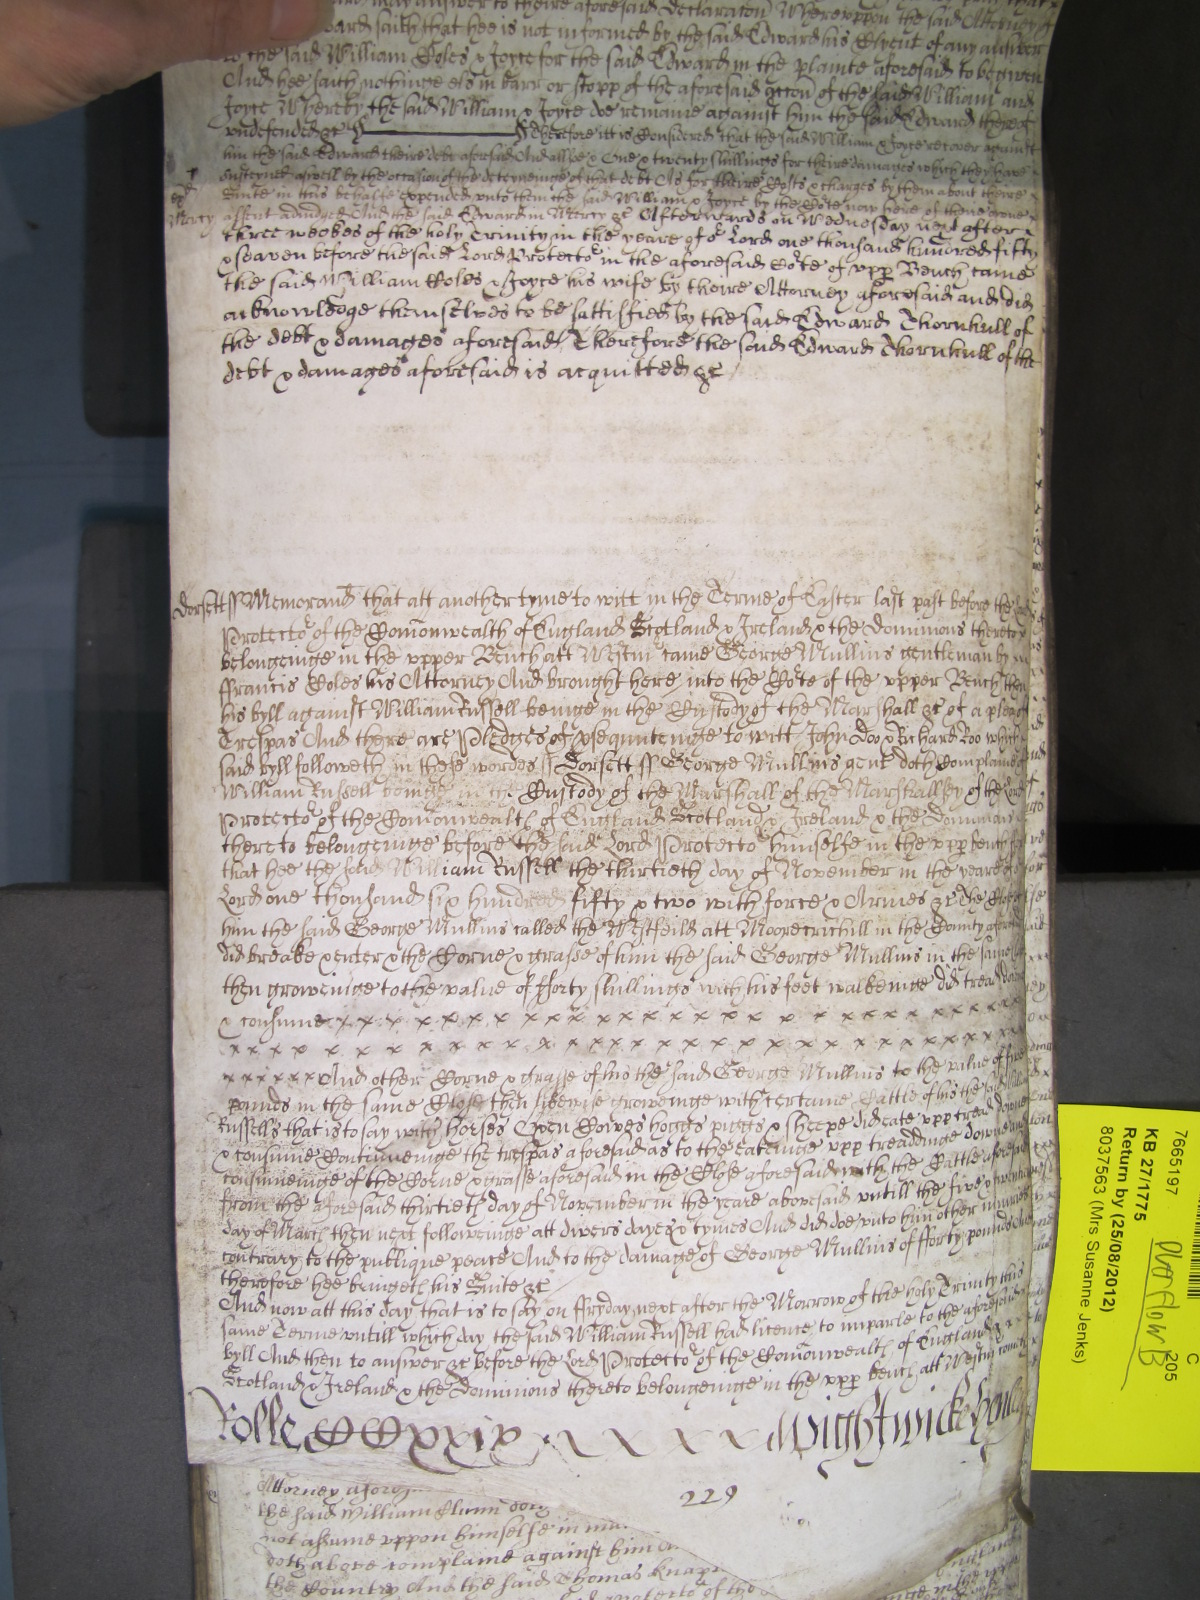 may answer to theire aforesaid declaracon Whereuppon the said Attorney
saith that hee is not informed by the said Edward his Clyent of any answer
to the said William Coles & Joyce for the said Edward in the plainte aforesaid to be given
And hee saith nothinge els in barr or stopp of the aforesaid accon of the said William and
Joyce Whereby the said William & Joyce doe remaine against him the said Edward thereof
undefended &c Therefore itt is Considered that the said William & Joyce recover against
him the said Edward theire debt aforesaid And allsoe One & twenty shillings for theire damages which they have
susteyned aswell by the occasion of the deteyneinge of that debt As for theire Costs & charges by them about theire
Suite in this behalfe expended unto them the said William & Joyce by the Cote may here of theire owne
Mercy
assent adiudged And the said Edward in Mercy &c Afterwards on Wednesday next after
three weekes of the holy Trinity in the yeare of or Lord one thousand hundred fifty
& seaven before the said Lord Protector in the aforesaid Cote of upp Bench came
the said William Coles & Joyce his wife by theire Attorney aforesaid and did
acknowledge themselves to be sattisfied by the said Edward Thornhull of
the debt & damages aforesaid Therefore the said Edward Thornhull of the
debt & damages aforesaid is acquitted &c
Dorsett ss Memorand that att another tyme to witt in the Terme of Easter last past before the Lord
Protector of the Comonwealth of England Scotland & Ireland & the Dominions thereto
belongeinge in the upper Bench att Westm came George Mullins gentleman by
ffrancis Coles his Attorney And brought here into the Cote of the upper Bench then
his byll against William Russell beinge in the Custody of the Marshall &c of a plea of
Trespas And there are Pledges of prsequuteinge to witt John Doo & Richard Roo which
said byll followeth in these wordes ss Dorsett ss George Mullins gent doth Complaine of
William Russell beinge in the Custody of the Marshall of the Marshallsey of the Lord
Protector of the Comonwealth of England Scotland & Ireland & the Dominions
thereto belongeinge before the said Lord Protector himselfe in the upp bench
that hee the said William Russell the thirtieth day of November in the yeare of or
Lord one thousand six hundred fifty & two with force & Armes &c the Close of
him the said George Mullins called the Westfeild att Moorecrichill in the County aforesaid
did breake & enter & the Corne & grasse of him the said George Mullins in the same
then groweinge to the value of fforty shillings with his feet walkeinge did tread downe
& consume x x x x x x x x x x x x x x x x x x x x x x
x x x x x x x x x x x x x x x x x x x x x x x x
x x x x x x And other Corne & grasse of his the said George Mullins to the value of five
pounds in the same Close then likewise groweinge with certaine Cattle of his the said William
Russells that is to say with horses Oxen Cowes hoggs piggs & sheepe did eate upp tread downe
& consume Contynueinge the trespas aforesaid as to the eateinge upp treaddinge downe and
consumeinge of the Corne & grasse aforesaid in the Close aforesaid with the Cattle aforesaid
from the aforesaid thirtieth day of November in the yeare abovesaid untill the five & twentieth
day of March then next followeinge att divers dayes & tymes And did doe unto him other iniuries
contrary to the publique peace And to the damage of George Mullins of fforty pounds And
therefore hee bringeth his Suite &c
And now att this day that is to say on ffryday next after the Morrow of the holy Trinity this
same Terme untill which day the said William Russell had licence to imparle to the aforesaid
byll And then to answer &c before the Lord Protector of the Comonwealth of England
Scotland & Ireland & the Dominions thereto belongeinge in the upp bench att Westm came
Rolle CCxxix x x x x Wightwicke
229
Attorney aforesaid
the said William
not assume uppon himselfe in
doth above complaine against him
the Country And the said Thomas
7665197
KB 27/1775
Return by (25/08/2012)
8037563 (Mrs Susanne Jenks)
Overflow B
C
205